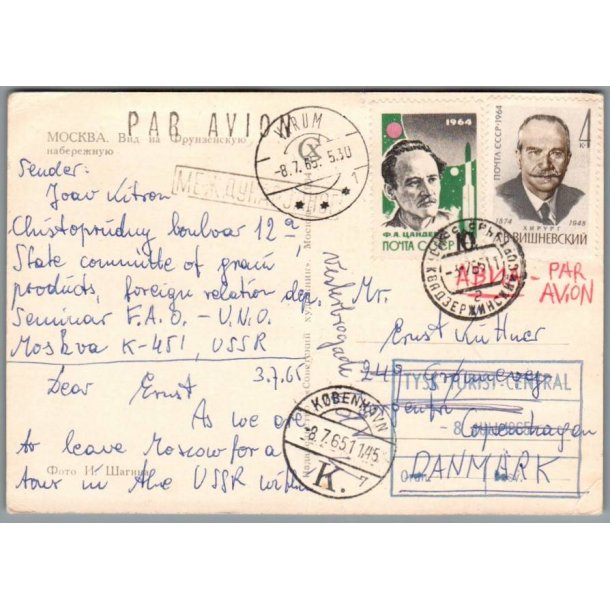 PAR AVION
МОСКВА. Вид на Фрунзенскую
набережную
Sender:
Joav Kitron
Chistoprudny boulvar 12a
State committe of grain
products, foreign relation dep.
Seminar F.A.O. - U.N.O.
Moskva K-451, USSR
3.7.65
Dear Ernst
As we are
to leave Moscow for a
tour in the USSR with
Фото И. Шагина
МЕЖДУНАРОДНОЕ
-8.7.65. 5.30
1
1964
Ф.А. ЦАНДЕР
ПОЧТА СССР
4 к.
ПОЧТА СССР·1964
1874
ХИРУРГ
1948
ВИШНЕВСКИЙ
АВИА - PAR
AVION
Mr.
Ernst Kuttner
249
Copenhagen
DANMARK
Vesterbrogade
TYSK TURIST-CENTRAL
KØBENHAVN
-8.7.65.11 45
K.
7